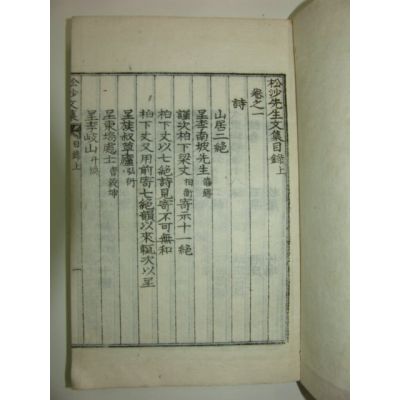 松沙先生文集目錄上
卷之一
詩
山居二絶
呈李南坡先生
謹次柏下梁丈相衡寄示十一絶
柏下丈以七絶詩見寄不可無和
柏下丈又用前寄七絶韻以來輒次以呈
呈族叔草廬弘衍
呈東塢處士
呈李峻山
松沙文集 目錄上 一